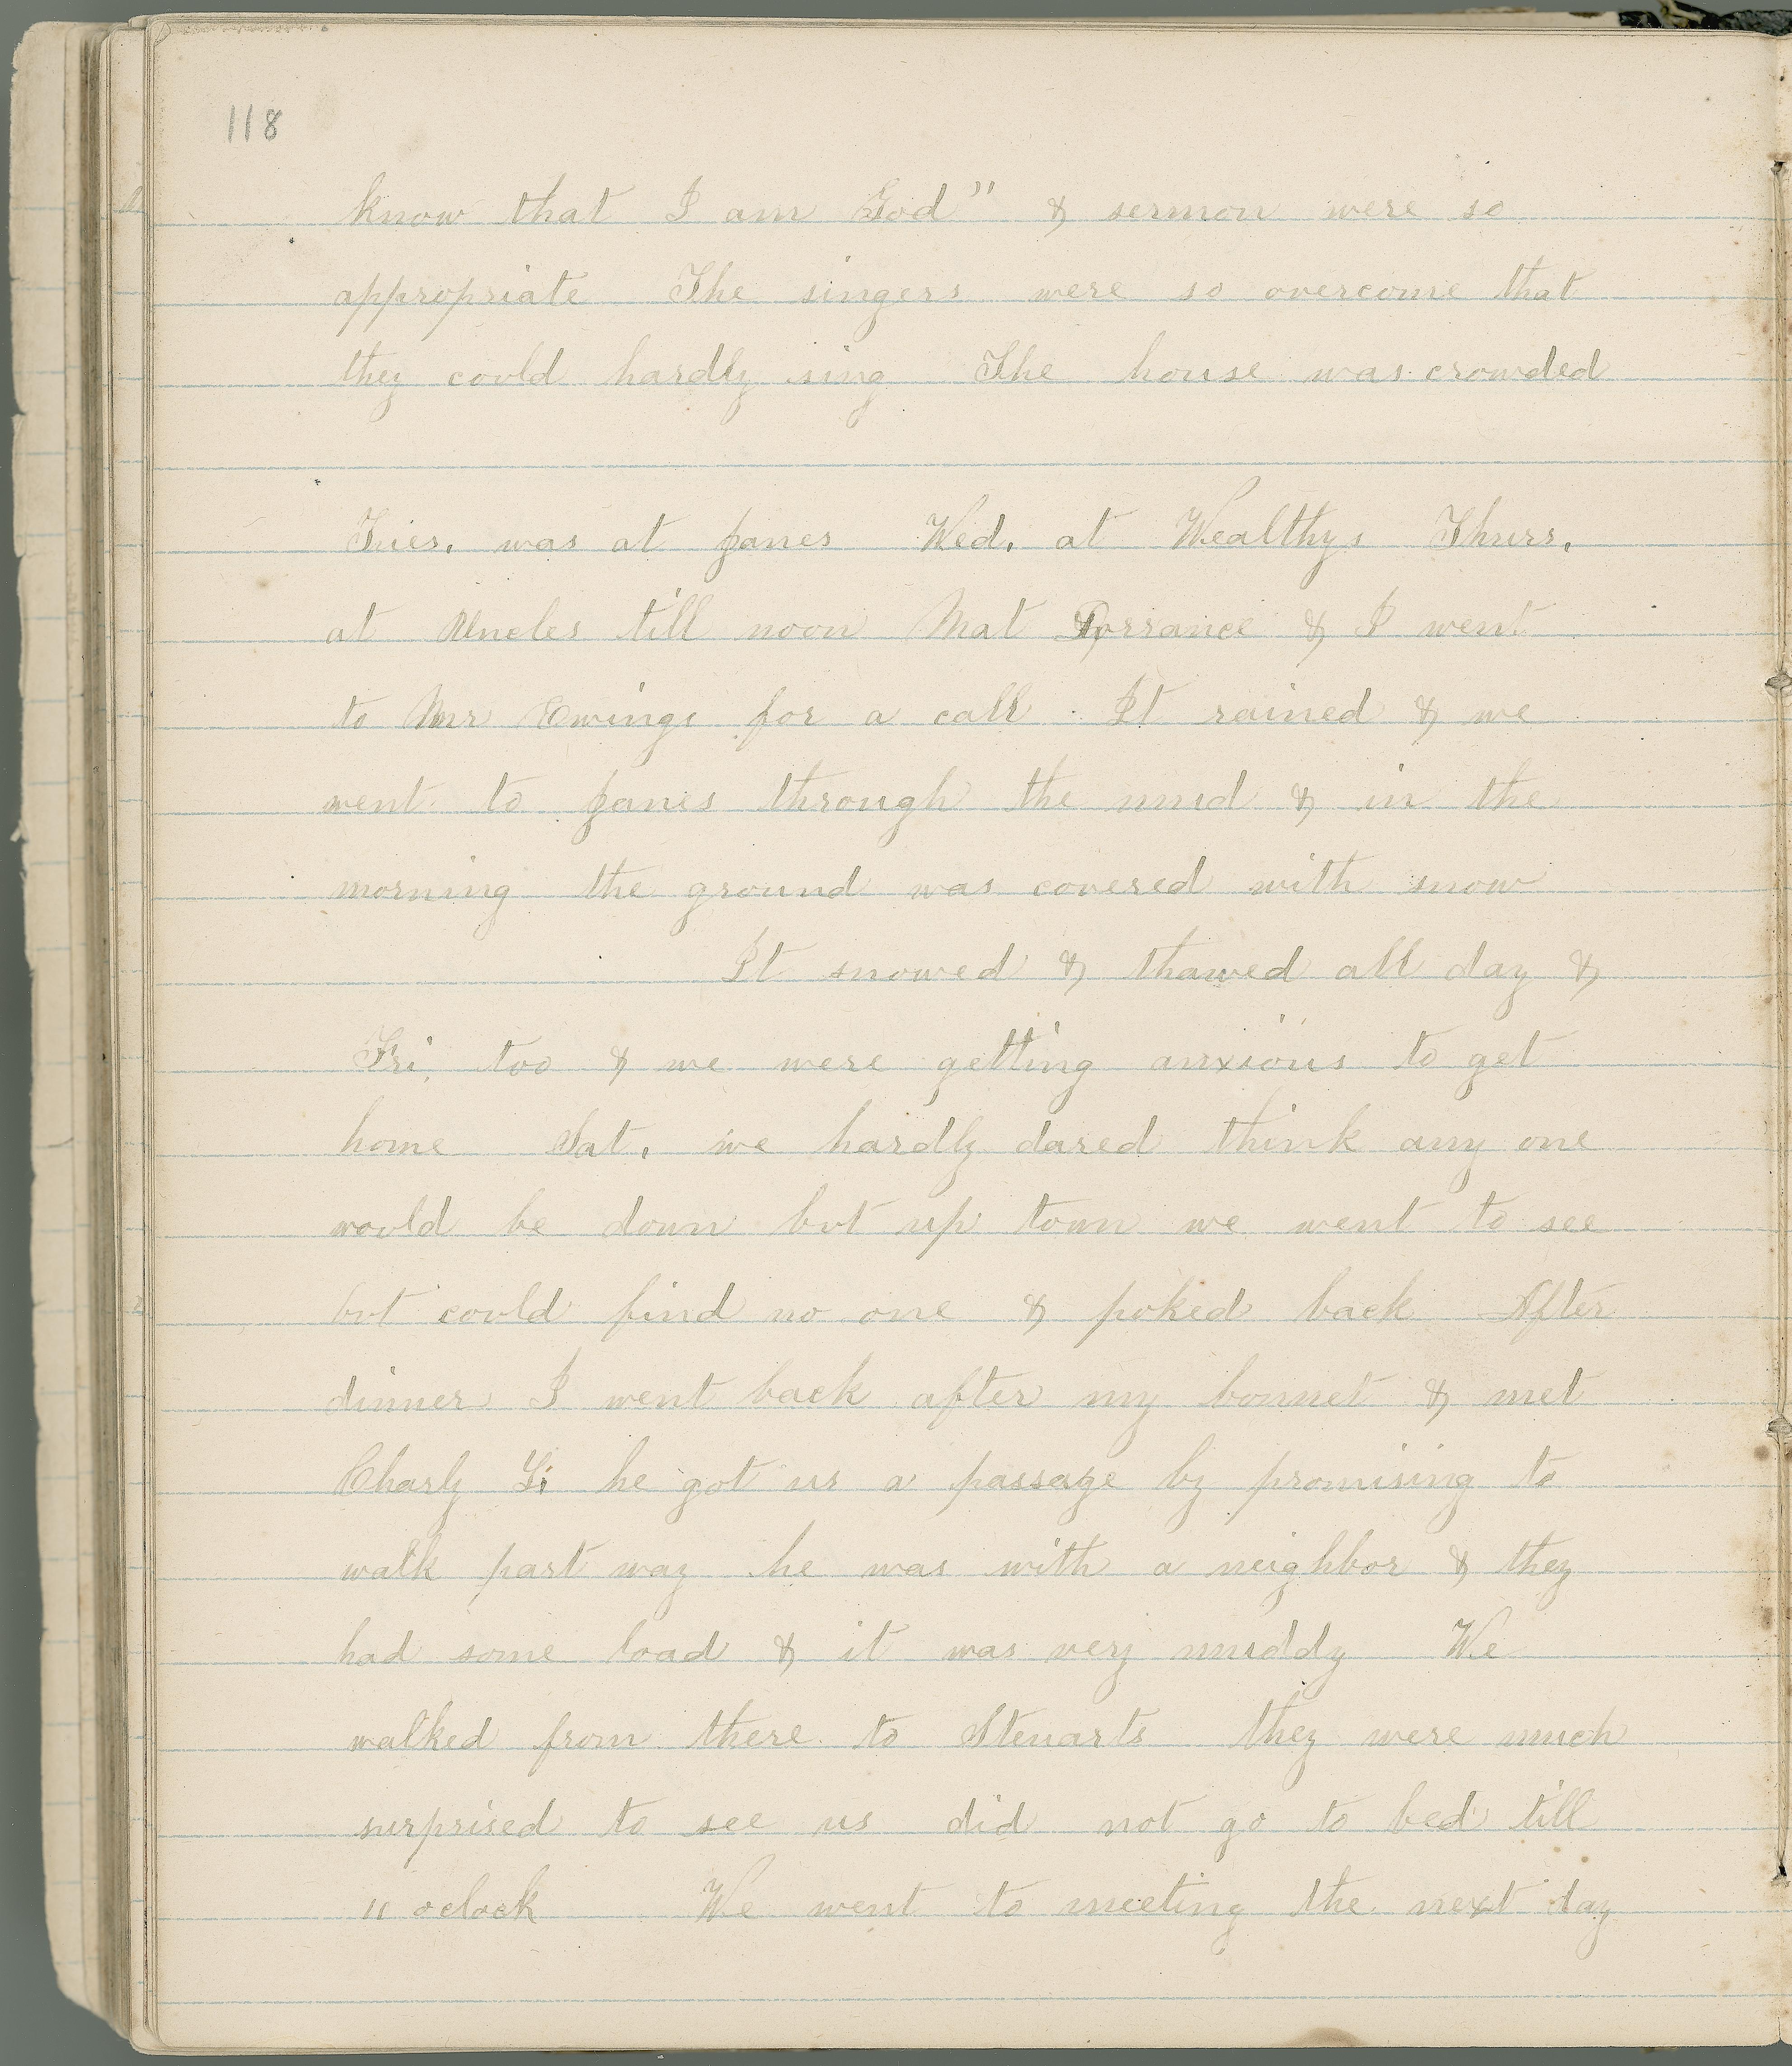 118
know that I am God" & sermon were so
appropriate The singers were so overcome that
they could hardly sing The house was crowded
Tues. was at Janes Wed. at Wealthys Thurs.
at Uncles till noon Mat Torrance & I went
to Mr Ewings for a call It rained & we
went to Janes through the mud & in the
morning the ground was covered with snow
It snowed & thawed all day &
Fri. too & we were getting anxious to get
home Sat. we hardly dared think any one
would be down but up town we went to see
but could find no one & poked back After
dinner I went back after my bonnet & met
Charly he got us a passage by promising to
walk part way he was with a neighbor & they
had some load & it was very muddy We
walked from there to Stewarts they were much
surprised to see us did not go to bed till
11 oclock We went to meeting the next day